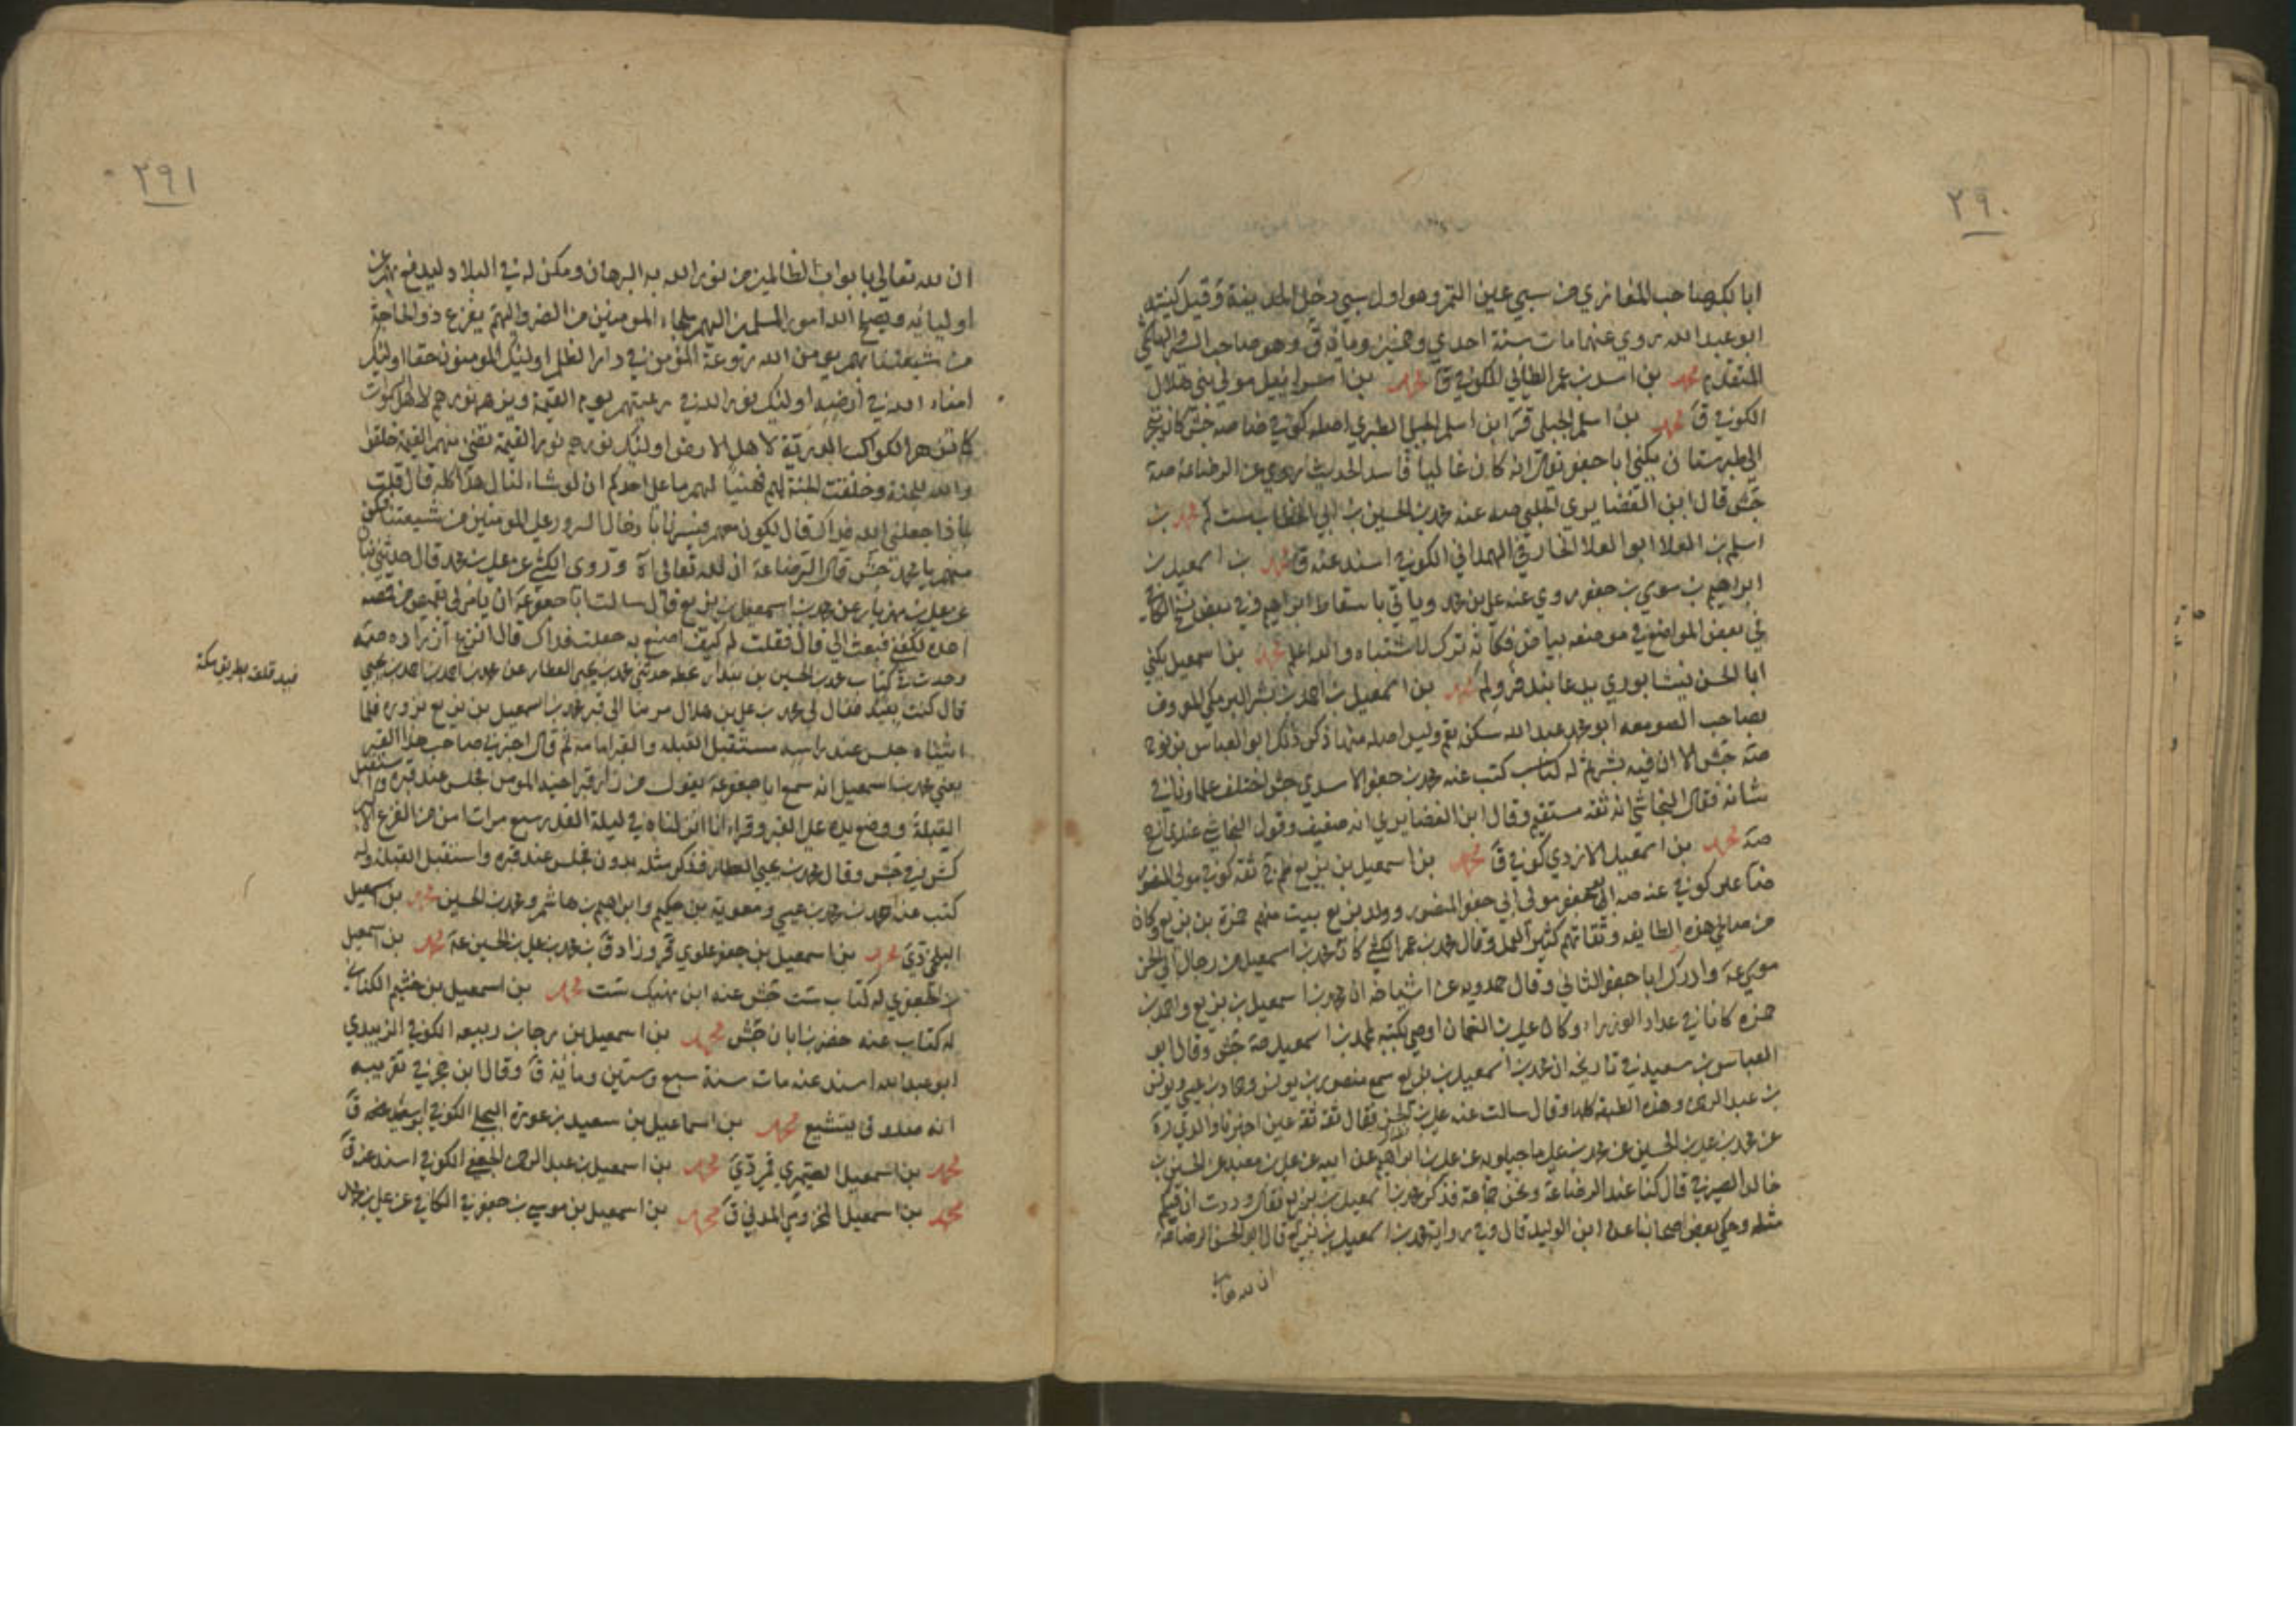 ٢٩٠
ابا بكر صاحب المغازي من سبي عين التمر وهو اول سبي دخل المدينة وقيل كنيته
ابو عبد الله روي عنهما مات سنة احدي وخمسين ومائة ق وهو صاحب السير
المتقدم محمد بن اسد بن عمر الطائي الكوفي ق محمد بن اسرائيل مولي بني هلال
الكوفي ق محمد بن اسلم الجبلي قر ابن اسلم الجبلي الطبري اصله كوفي خاصه جش كان يتجر
الي طبرستان يكني ابا جعفر يقال انه كان غاليا فاسد الحديث روي عن الرضا ع صه
جش قال ابن الغضايري الجلبي صه عنه محمد بن الحسين بن ابي الخطاب ست لم محمد بن
اسلم بن العلا ابو العلا الخارفي الهمداني الكوفي اسند عنه ق محمد بن اسمعيل بن
ابراهيم بن موسي بن جعفر روي عنه علي بن محمد وياتي باسقاط ابراهيم وفي بعض نسخ الكافي
في بعض المواضع في موضعه بياض فكانه ترك للاشتباه والله اعلم محمد بن اسمعيل يكني
ابا الحسن نيشابوري يدعا بندفر ولم محمد بن اسمعيل بن احمد بن بشر البرمكي المعروف
بصاحب الصومعه ابو محمد عبد الله سكن بقم وليس اصله منها ذكر ذلك ابو العباس بن نوح
صه جش الا ان فيه بشير ثم له كتاب كتب عنه محمد بن جعفر الاسدي جش اختلف علماونا في
شانه فقال النجاشي انه ثقه مستقيم وقال ابن الغضايري انه ضعيف وقول النجاشي عندي ارجح
صه محمد بن اسمعيل الازدي كوفي ق محمد بن اسمعيل بن بزيع ظم ثقة كوفي مولي المنصور
ضا علي كوفي عنه صه ابو جعفر مولي ابي جعفر المنصور وولد بزيع بيت منهم حمزة بن بزيع وكان
من صالحي هذه الطايفه وثقاتهم كثير العمل وقال محمد بن عمر الكشي كان محمد بن اسمعيل من رجال ابي الحسن
موسي ع وادرك ابا جعفر الثاني وقال حمدويه عن اشياخه ان محمد بن اسمعيل بن بزيع واحمد بن
حمزه كانا في عداد الوزراء وكان علي بن النعمان اوصي بكتبه لمحمد بن اسمعيل صه جش وقال ابو
العباس بن سعيد في تاريخه ان محمد بن اسمعيل بن بزيع سمع منصور بن يونس وحماد بن عيسي ويونس
بن عبد الرحمن وهذه الطبقه كلها وقال سالت عنه علي بن الحسن فقال ثقة ثقة عين اخبرنا والدي ره
عن محمد بن علي بن الحسين عن محمد بن علي ماجيلويه عن علي بن ابراهيم عن ابيه عن علي بن معبد عن الحسين بن
خالد الصيرفي قال كنا عند الرضا ع ونحن جماعة فذكر محمد بن اسمعيل بن بزيع فقال وددت ان فيكم
مثله وحكي بعض اصحابنا عن ابن الوليد قال وفي رواية محمد بن اسمعيل بن بزيع قال ابو الحسن الرضا ع
ان لله تعالي
٢٩١
ان لله تعالي بابواب الظالمين من نور الله به البرهان ومكن له في البلاد ليدفع بهم عن
اوليائه ويصلح الله امور المسلمين اليهم ملجاء المومنين من الضر واليهم يفزع ذو الحاجة
من شيعتنا بهم يومن الله روعة المومن في دار الظلم اولئك المومنون حقا اولئك
امناء الله في ارضه اولئك نور الله في رعيتهم يوم القيمة ويزهر نورهم لاهل السموات
كما تزهر الكواكب الدرية لاهل الارض اولئك نورهم نور القيمة تضي منهم القيمة خلقوا
والله للجنة وخلقت الجنة لهم فهنيئا لهم ما علي احدكم ان لو شاء لنال هذا كله قال قلت
بماذا جعلني الله فداك قال يكون معهم فيسرنا بادخال السرور علي المومنين من شيعتنا فكن
منهم يا محمد جش قال الرضا ع ان لله تعالي اه وروي الكشي عن علي بن محمد قال حدثني بنان
عن علي بن مهزيار عن محمد بن اسمعيل بن بزيع قال سالت ابا جعفر ع ان يامر لي بقميص من قمصه
اعده لكفني فبعث الي قال فقلت له كيف اصنع به جعلت فداك قال انزع ازراره صه
وجدت في كتاب محمد بن الحسين بن بندار بخطه حدثني محمد بن يحيي العطار عن محمد بن احمد بن يحيي
فيد قلعة بطريق مكة
قال كنت بفيد فقال لي محمد بن علي بن هلال مر بنا الي قبر محمد بن اسمعيل بن بزيع نزوره فلما
اتيناه جلس عند راسه مستقبل القبله والقبر امامه ثم قال اخبرني صاحب هذا القبر
يعني محمد بن اسمعيل انه سمع ابا جعفر ع يقول من زار قبر اخيه المومن فجلس عند قبره واستقبل
القبلة ووضع يده علي القبر وقراء انا انزلناه في ليلة القدر سبع مرات امن من الفزع الاكبر
كش في جش وقال محمد بن يحيي العطار فذكر مثله بدون فجلس عند قبره واستقبل القبله وله
كتب عنه احمد بن محمد بن عيسي ومعوية بن حكيم وابراهيم بن هاشم ومحمد بن الحسين محمد بن اسمعيل
البلخي دي محمد بن اسمعيل بن جعفر علوي قر وزاد ق بن محمد بن علي بن الحسين ع محمد بن اسمعيل
الجعفري له كتاب ست جش عنه ابن نهيك ست محمد بن اسمعيل بن خثيم الكناني
له كتاب عنه جعفر بن ابان جش محمد بن اسمعيل بن رجا بن ربيعه الكوفي الزبيدي
ابو عبد الله اسند عنه مات سنة سبع وستين ومائة ق وقال ابن حجر في تقريبه
انه صدوق يتشيع محمد بن اسماعيل بن سعيد بن عويرة البجلي الكوفي اسند عنه ق
محمد بن اسمعيل الصيمري قمي دي محمد بن اسمعيل بن عبد الرحمن الجعفي الكوفي اسند عنه ق
محمد بن اسمعيل المخزومي المدني ق محمد بن اسمعيل بن موسي بن جعفر في الكافي عن علي بن محمد